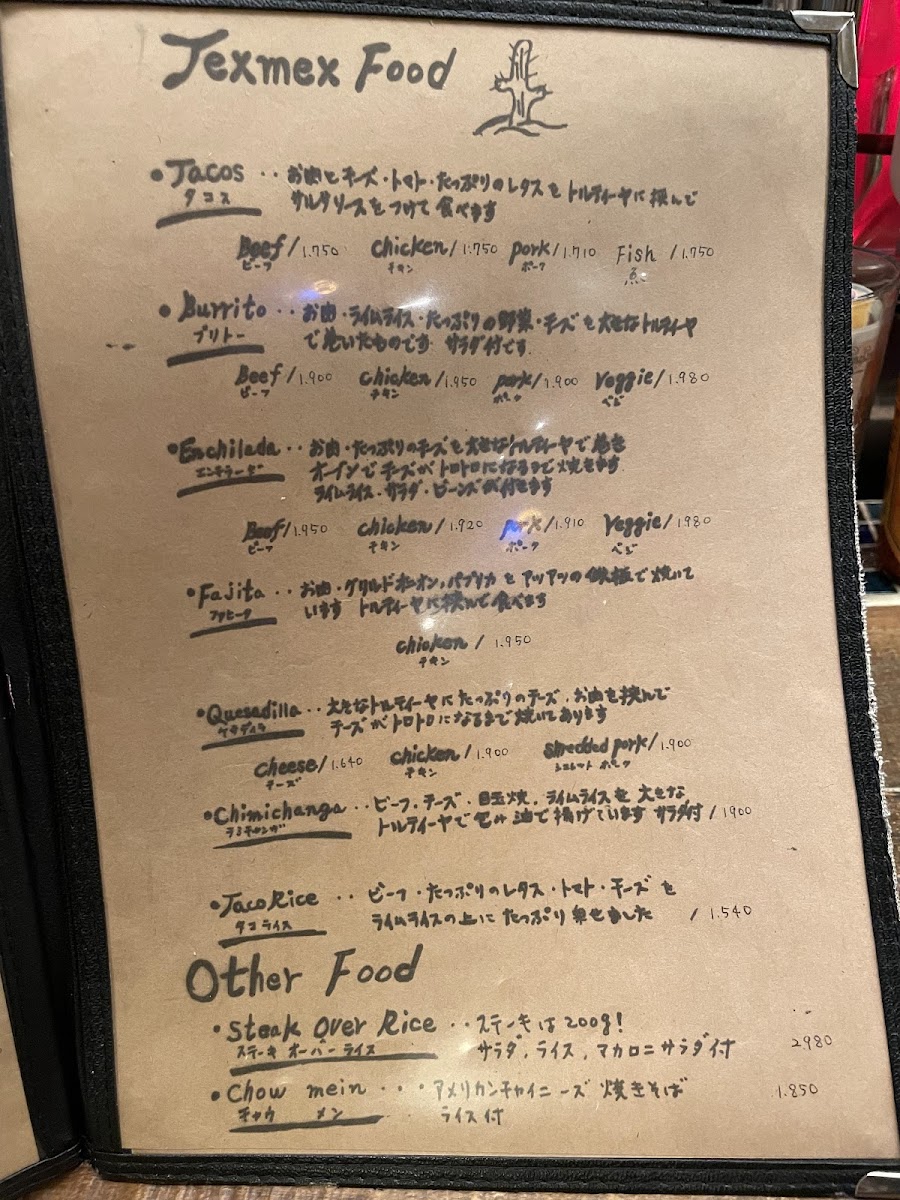 Texmex Food
• Tacos ‥ お肉とチーズ・トマト・たっぷりのレタスをトルティーヤに挟んで
タコス サルサソースをつけて食べます
Beef/1.750 chicken/1.750 pork/1.710 Fish/1.750
ビーフ チキン ポーク 魚
• Burrito ‥ お肉・ライムライス・たっぷりの野菜・チーズを大きなトルティーヤ
ブリトー で巻いたものです サラダ付です
Beef/1.900 chicken/1.950 pork/1.900 Veggie/1.980
ビーフ チキン ポーク ベジ
• Enchilada ‥ お肉・たっぷりのチーズを大きなトルティーヤで巻き
エンチラーダ オーブンでチーズがトロトロになるまで焼きます
ライムライス・サラダ・ビーンズが付きます
Beef/1.950 chicken/1.920 pork/1.910 Veggie/1980
ビーフ チキン ポーク ベジ
• Fajita ‥ お肉・グリルドオニオン,パプリカをアツアツの鉄板で焼いて
ファヒータ います トルティーヤに挟んで食べます
chicken / 1.950
チキン
• Quesadilla ‥ 大きなトルティーヤにたっぷりのチーズ,お肉を挟んで
ケサディラ チーズがトロトロになるまで焼いてあります
cheese/1.640 chicken/1.900 shredded pork/1.900
チーズ チキン ポーク
• Chimichanga ‥ ビーフ,チーズ・目玉焼,ライムライスを大きな
チミチャンガ トルティーヤで包み油で揚げています サラダ付/1900
• Taco Rice ‥ ビーフ・たっぷりのレタス・トマト・チーズを
タコライス ライムライスの上にたっぷり乗せました / 1.540
Other Food
• Steak Over Rice ‥ ステーキは200g!
ステーキ オーバーライス サラダ,ライス,マカロニサラダ付 2980
• Chow mein ・・・ アメリカンチャイニーズ 焼きそば 1.850
チャウ メン ライス付